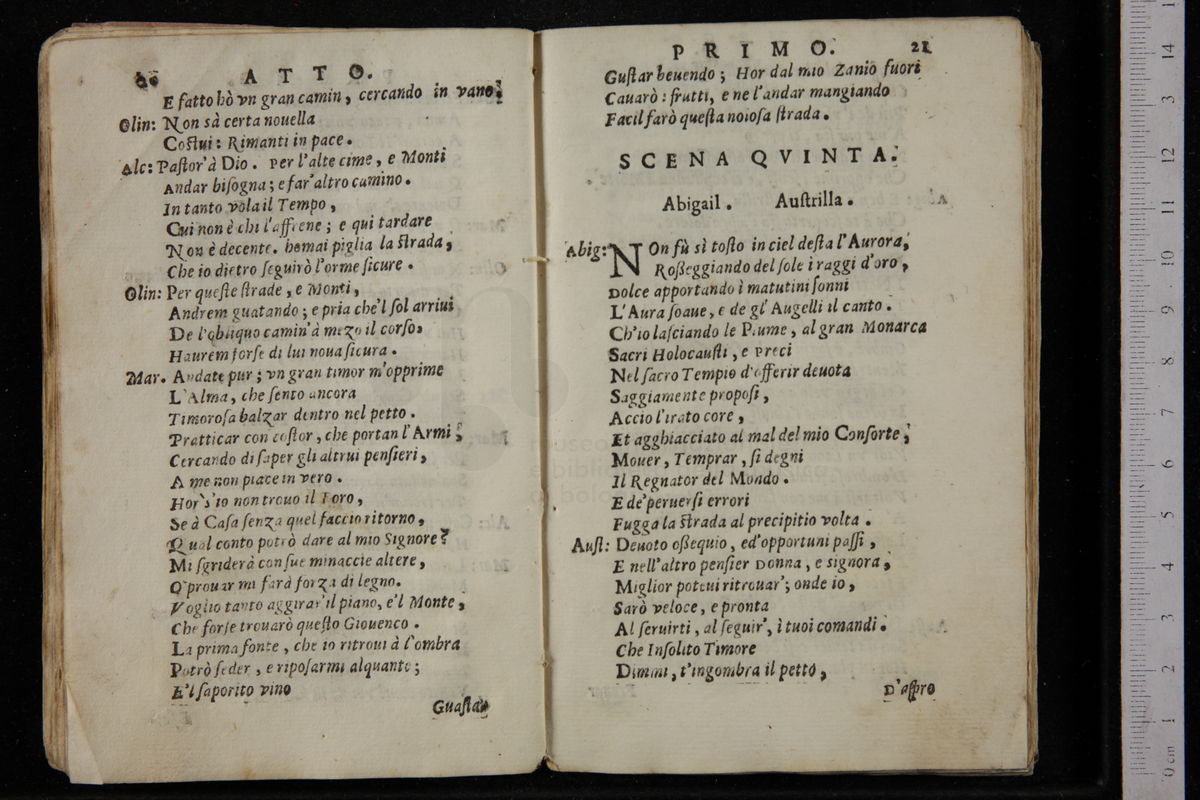 20 ATTO.
E fatto hò vn gran camin, cercando in vano.
Olin: Non sà certa nouella
Coſtui: Rimanti in pace.
Alc: Paſtor' à Dio. Per l'alte cime, e Monti
Andar biſogna; e far' altro camino.
In tanto vola il Tempo,
Cui non è chi l'affrene; e qui tardare
Non è decente. homai piglia la ſtrada,
Che io dietro ſeguirò l'orme ſicure.
Olin: Per queſte ſtrade, e Monti,
Andrem guatando; e pria che'l ſol arriui
De l'obliquo camin' à mezo il corſo,
Haurem forſe di lui noua ſicura.
Mar. Andate pur; vn gran timor m'opprime
L'Alma, che ſento ancora
Timoroſa balzar dentro nel petto.
Pratticar con coſtor, che portan l'Armi,
Cercando di ſaper gli altrui penſieri,
A me non piace in vero.
Hor s'io non trouo il Toro,
Se à Caſa ſenza quel faccio ritorno,
Qual conto potrò dare al mio Signore?
Mi ſgriderà con ſue minaccie altere,
O' prouar mi farà forza di legno.
Voglio tanto aggirar' il piano, e'l Monte,
Che forſe trouarò queſto Giouenco.
La prima fonte, che io ritroui à l'ombra
Potrò ſeder, e ripoſarmi alquanto;
E'l ſaporito vino
Guſta
PRIMO. 21
Guſtar beuendo; Hor dal mio Zanio fuori
Cauarò: frutti, e ne l'andar mangiando
Facil farò queſta noioſa ſtrada.
SCENA QVINTA.
Abigail. Auſtrilla.
Abig: NOn fù sì toſto in ciel deſta l'Aurora,
Roßeggiando del ſole i raggi d'oro,
Dolce apportando i matutini ſonni
L'Aura ſoaue, e de gl' Augelli il canto.
Ch'io laſciando le Piume, al gran Monarca
Sacri Holocauſti, e Preci
Nel ſacro Tempio d'offerir deuota
Saggiamente propoſi,
Accio l'irato core,
Et agghiacciato al mal del mio Conſorte,
Mouer, Temprar, ſi degni
Il Regnator del Mondo.
E de' peruerſi errori
Fugga la ſtrada al precipitio volta.
Auſt: Deuoto oßequio, ed' opportuni paſſi,
E nell'altro penſier Donna, e signora,
Miglior poteui ritrouar'; onde io,
Sarò veloce, e pronta
Al ſeruirti, al ſeguir', i tuoi comandi.
Che Inſolito Timore
Dimmi, t'ingombra il petto,
D'aſpro